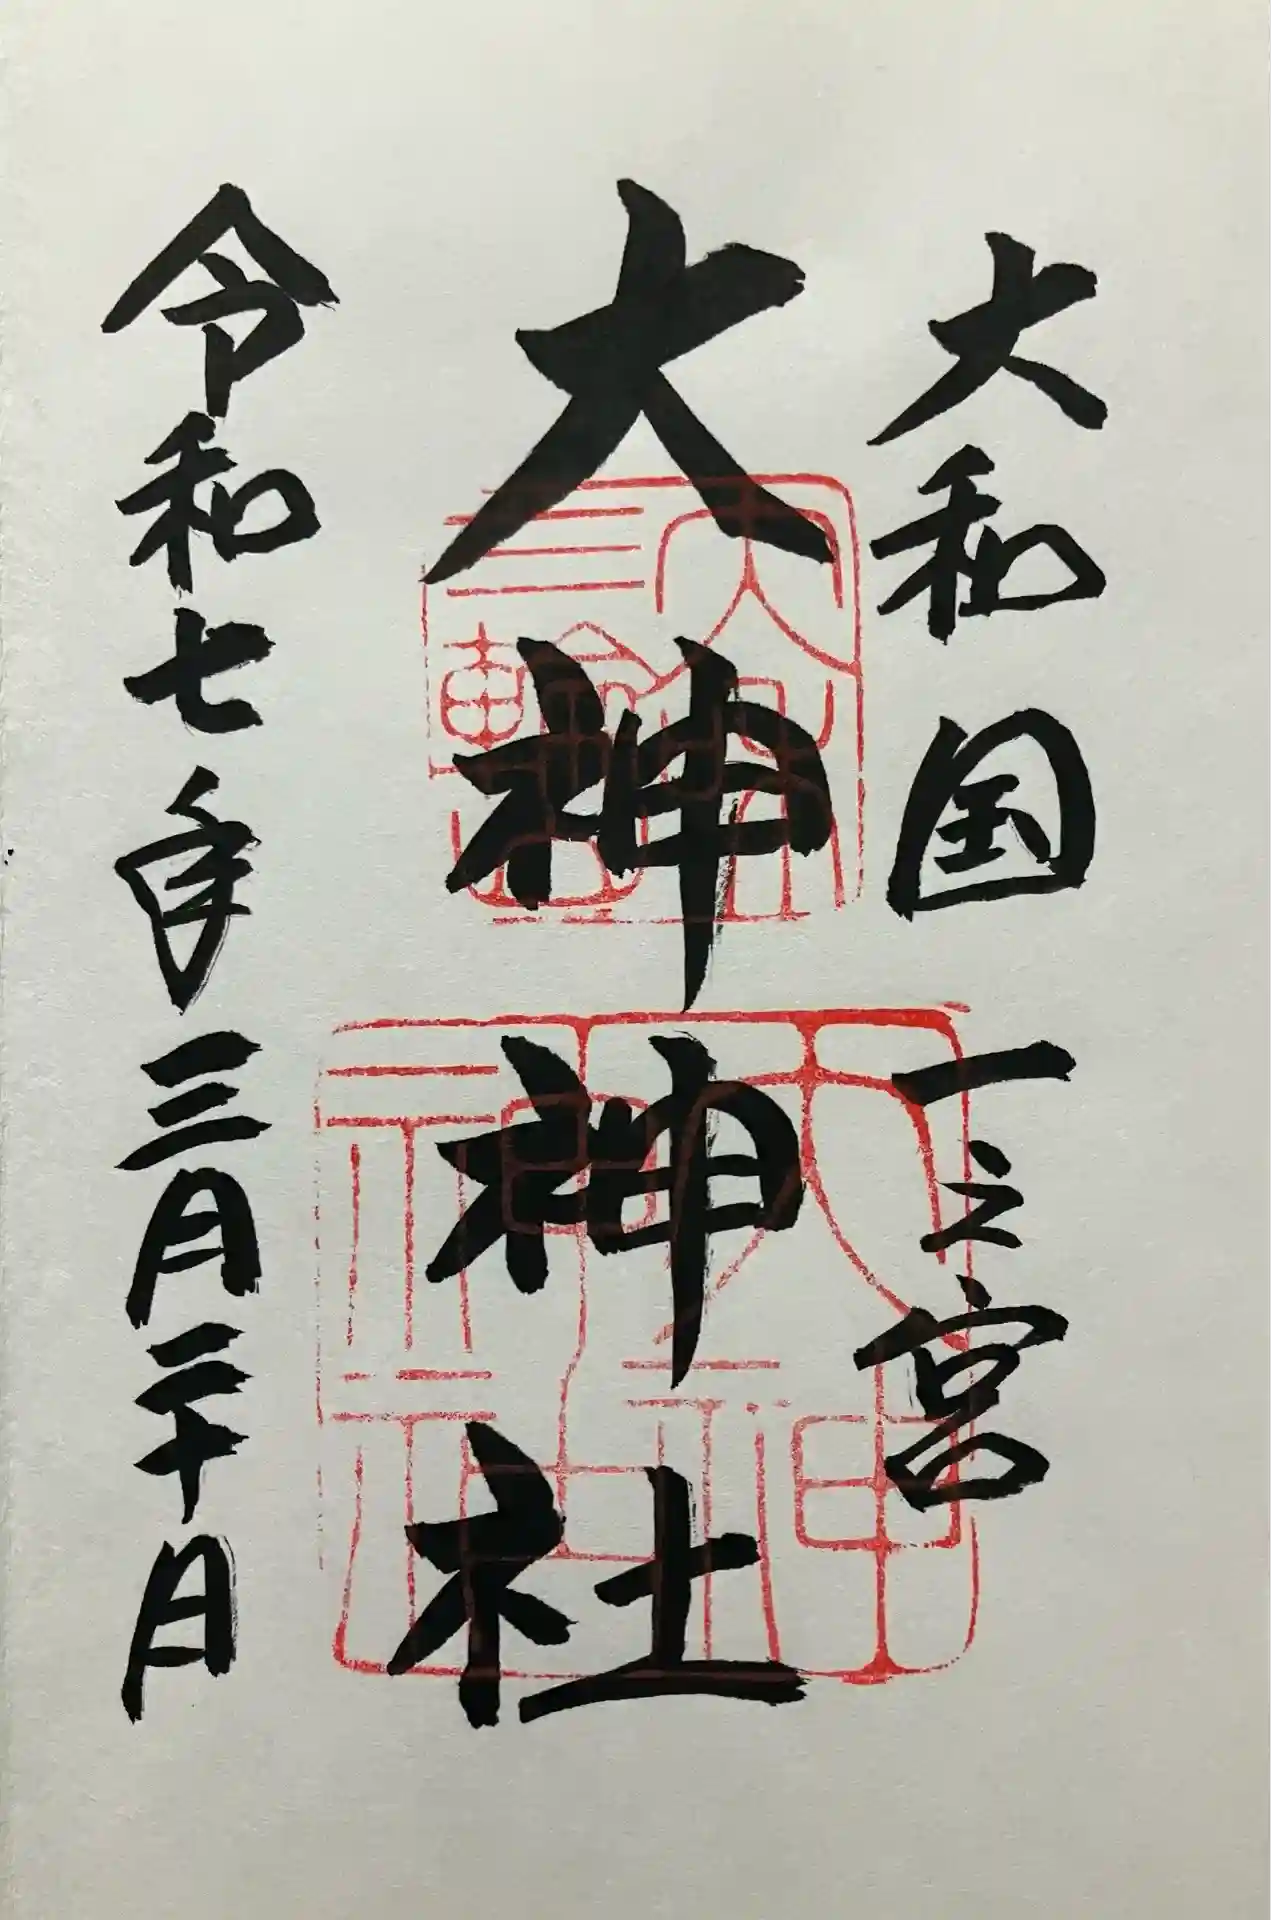 大和国一之宮
大神神社
令和七年三月二十日